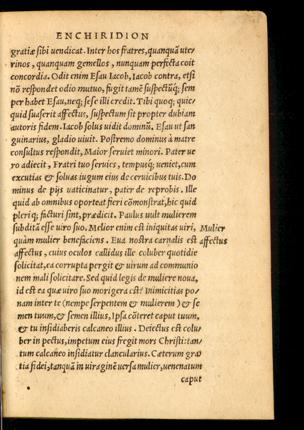 ENCHIRIDION
gratiæ sibi uendicat. Inter hos fratres, quanquā ute/
rinos, quanquam gemellos, nunquam perfecta coit
concordia. Odit enim Esau Iacob, Iacob contra, etsi
nō respondet odio mutuo, fugit tamē suspectūq; sem
per habet Esau, neq; sese illi credit. Tibi quoq; quic/
quid suaserit affectus, suspectum sit propter dubiam
autoris fidem. Iacob solus uidit dominū, Esau ut san
guinarius, gladio uiuit. Postremo dominus à matre
consultus respondit, Maior seruiet minori. Pater ue
ro adiecit, Fratri tuo seruies, tempusq; ueniet, cum
excutias & soluas iugum eius de ceruicibus tuis. Do
minus de pijs uaticinatur, pater de reprobis. Ille
quid ab omnibus oporteat fieri cōmonstrat, hic quid
pleriq; facturi sint, prædicit. Paulus uult mulierem
subditā esse uiro suo. Melior enim est iniquitas uiri,
quàm mulier benefaciens. Eua nostra carnalis est
Mulier
affectus
affectus, cuius oculos callidus ille coluber quotidie
solicitat, ea corrupta pergit & uirum ad communio
nem mali solicitare. Sed quid legis de muliere noua,
id est ea quæ uiro suo morigera est? Inimicitias po/
nam inter te (nempe serpentem & mulierem) & se
men tuum, & semen illius, Ipsa cōteret caput tuum,
& tu insidiaberis calcaneo illius. Deiectus est colu/
ber in pectus, impetum eius fregit mors Christi: tan/
tum calcaneo insidiatur clancularius. Cæterum gra/
tia fidei, tanquā in uiraginē uersa mulier, uenenatum
caput